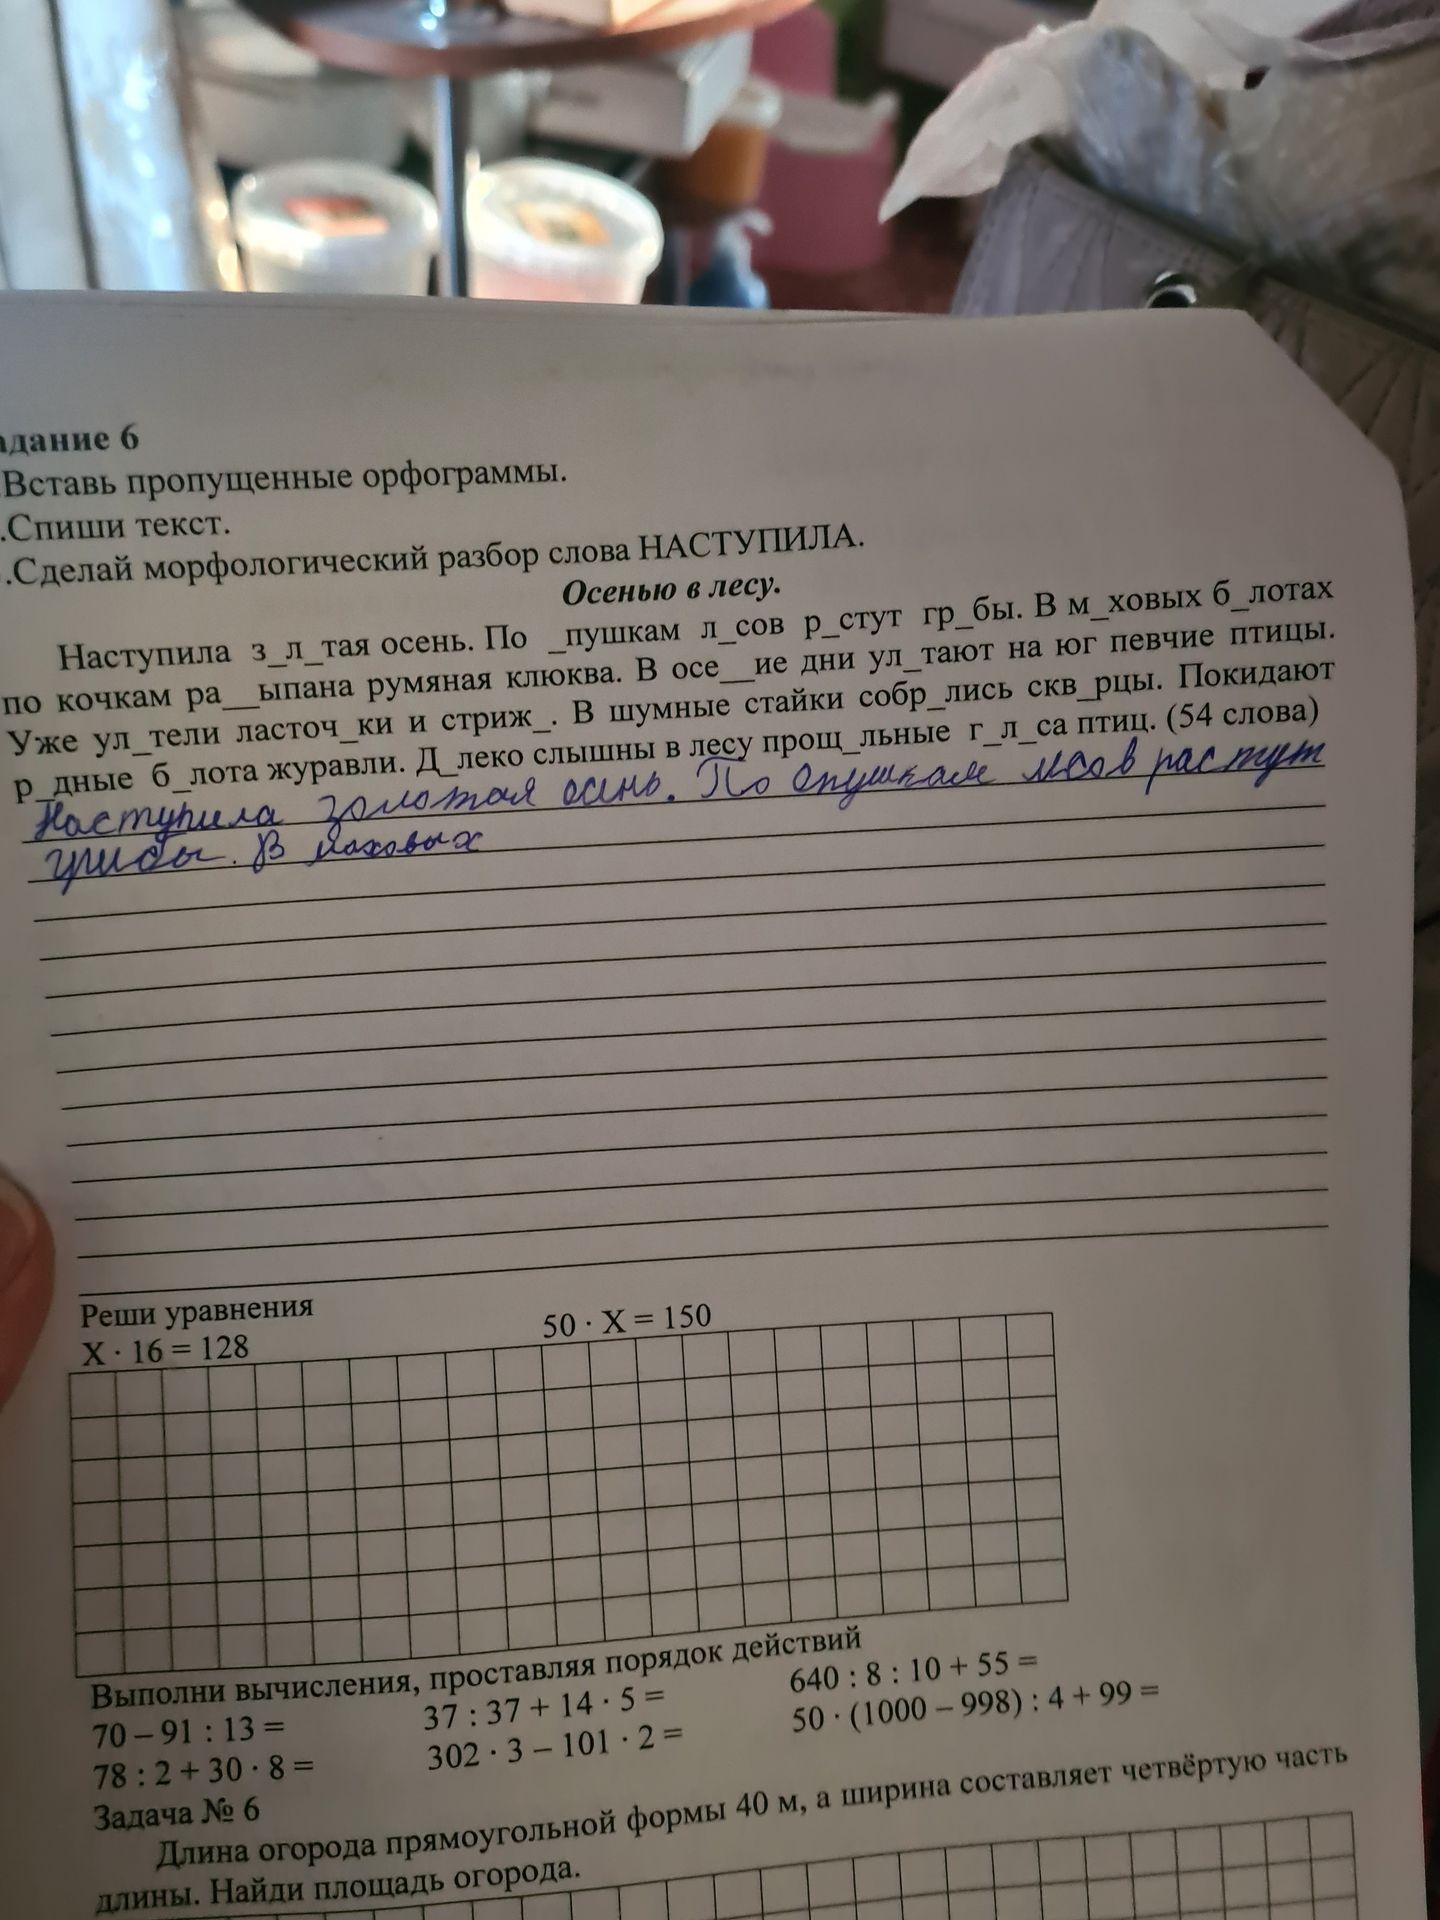 адание 6
.Вставь пропущенные орфограммы.
.Спиши текст.
.Сделай морфологический разбор слова НАСТУПИЛА.
Осенью в лесу.
Наступила з_л_тая осень. По _пушкам л_сов р_стут гр_бы. В м_ховых б_лотах
по кочкам ра__ыпана румяная клюква. В осе__ие дни ул_тают на юг певчие птицы.
Уже ул_тели ласточ_ки и стриж_. В шумные стайки собр_лись скв_рцы. Покидают
р_дные б_лота журавли. Д_леко слышны в лесу прощ_льные г_л_са птиц. (54 слова)
Наступила золотая осень. По опушкам лесов растут
грибы. В моховых
Реши уравнения
X · 16 = 128 50 · X = 150
Выполни вычисления, проставляя порядок действий
70 – 91 : 13 = 37 : 37 + 14 · 5 = 640 : 8 : 10 + 55 =
78 : 2 + 30 · 8 = 302 · 3 – 101 · 2 = 50 · (1000 – 998) : 4 + 99 =
Задача № 6
Длина огорода прямоугольной формы 40 м, а ширина составляет четвёртую часть
длины. Найди площадь огорода.